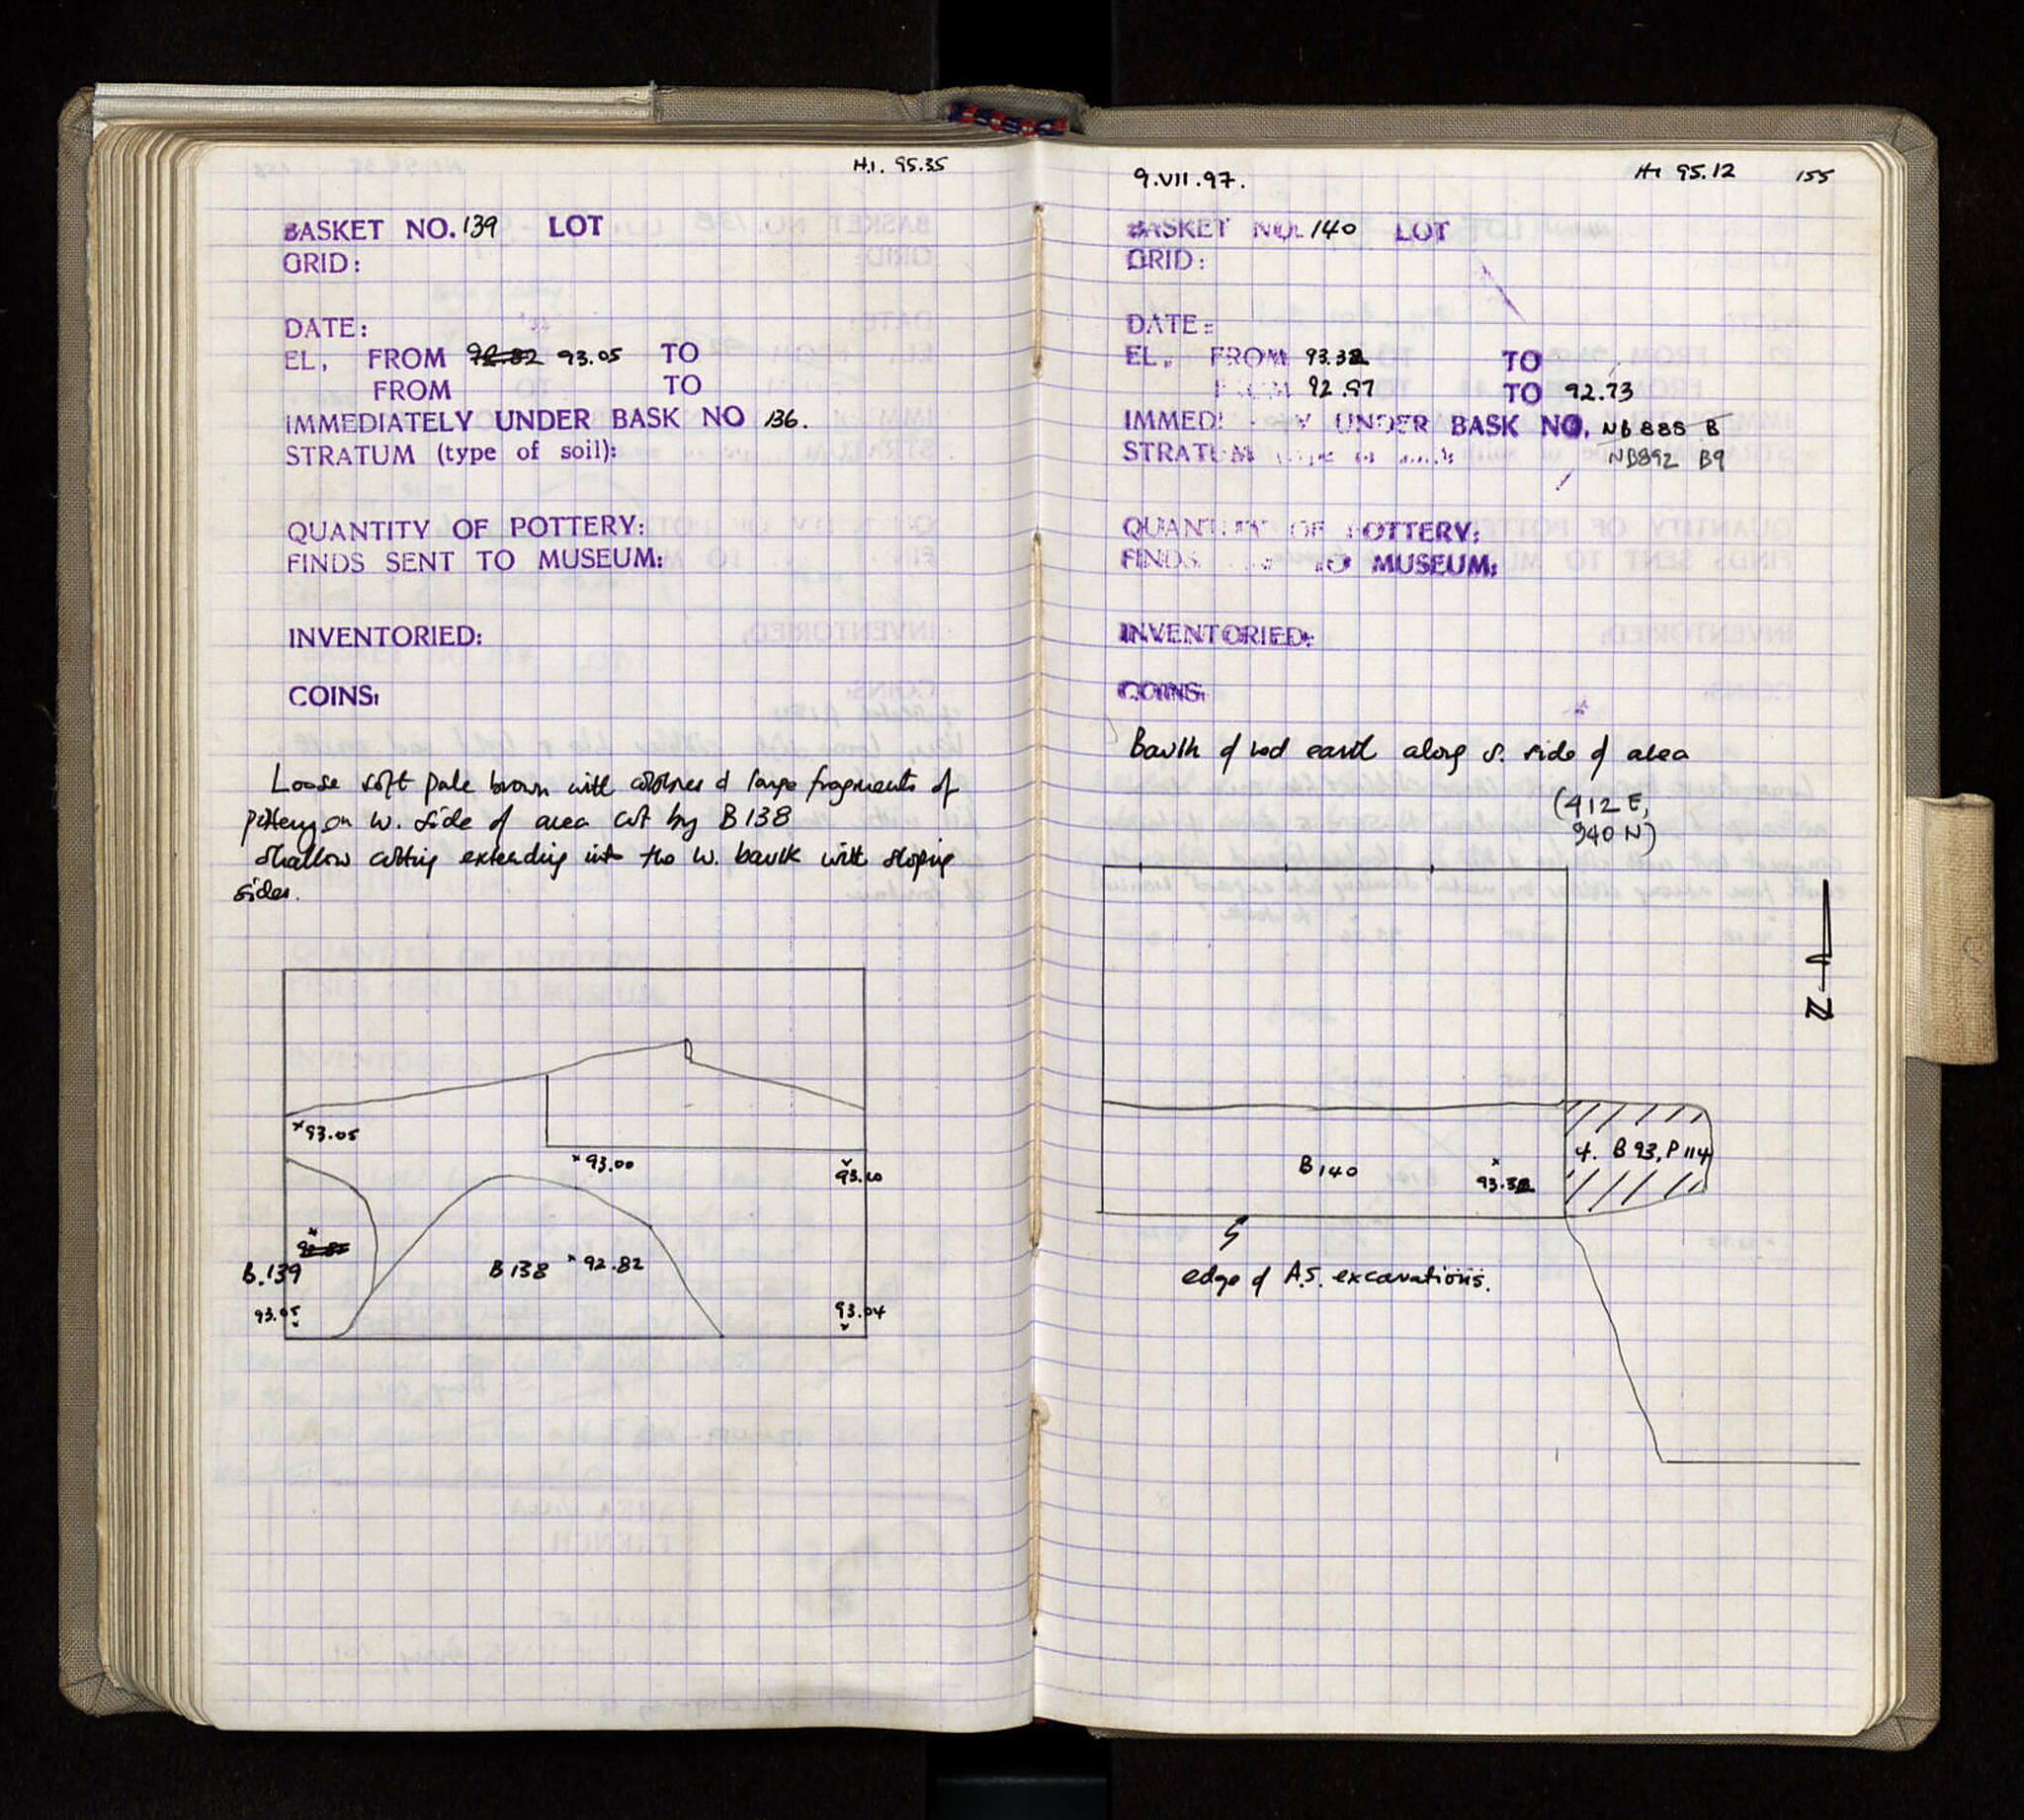 H.I. 95.35
BASKET NO. 139 LOT
GRID:
DATE:
EL, FROM 92.82 93.05 TO
FROM TO
IMMEDIATELY UNDER BASK NO 136.
STRATUM (type of soil):
QUANTITY OF POTTERY:
FINDS SENT TO MUSEUM:
INVENTORIED:
COINS:
Loose soft pale brown with cobbles & large fragments of
pottery on W. side of area cut by B 138
Shallow cutting extending into the W. baulk with sloping
sides.
×93.05
×93.00
93.10
B.139
B 138 ×92.82
93.05
93.04
9.VII.97.
HI 95.12
155
BASKET NO. 140 LOT
GRID:
DATE:
EL, FROM 93.32 TO
FROM 92.97 TO 92.73
IMMEDIATELY UNDER BASK NO. NB 888 B
NB892 B9
STRATUM (type of soil):
QUANTITY OF POTTERY:
FINDS SENT TO MUSEUM:
INVENTORIED:
COINS:
Baulk of red earth along S. side of area
(412 E,
940 N)
N
B 140
93.32
B 93, P 114
edge of A.S. excavations.